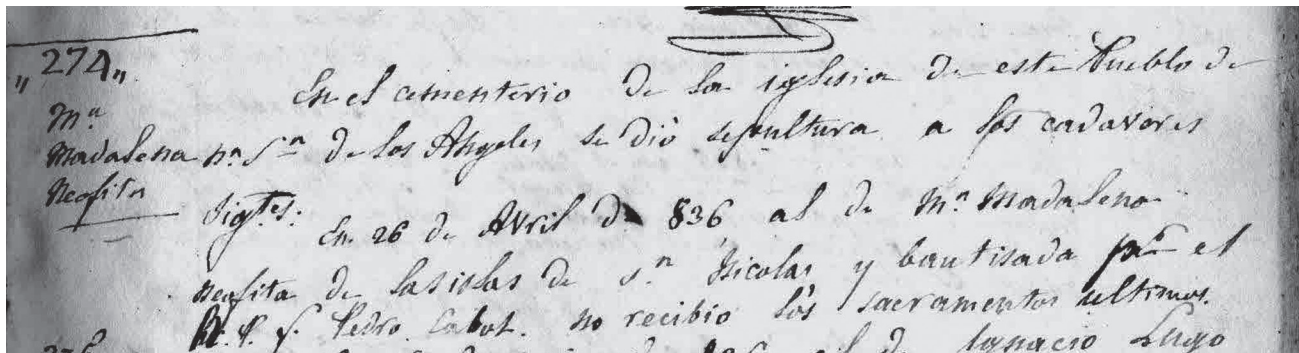 "274"
Mª
Madalena
Neofita
En el cementerio de la iglesia de este Pueblo de
nª Sª de los Angeles se dió sepultura a los cadaveres
sigtes:
En 26 de Avril de 836 al de Mª Madalena
neofita de las islas de Sn Nicolas y bautisada por el
R. P. F. Pedro Cabot. no recibio los sacramentos ultimos.
836 al de Ignacio Lugo